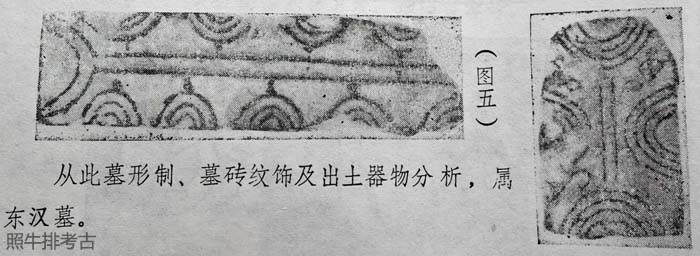 （图五）
从此墓形制、墓砖纹饰及出土器物分析，属
东汉墓。
照牛排考古